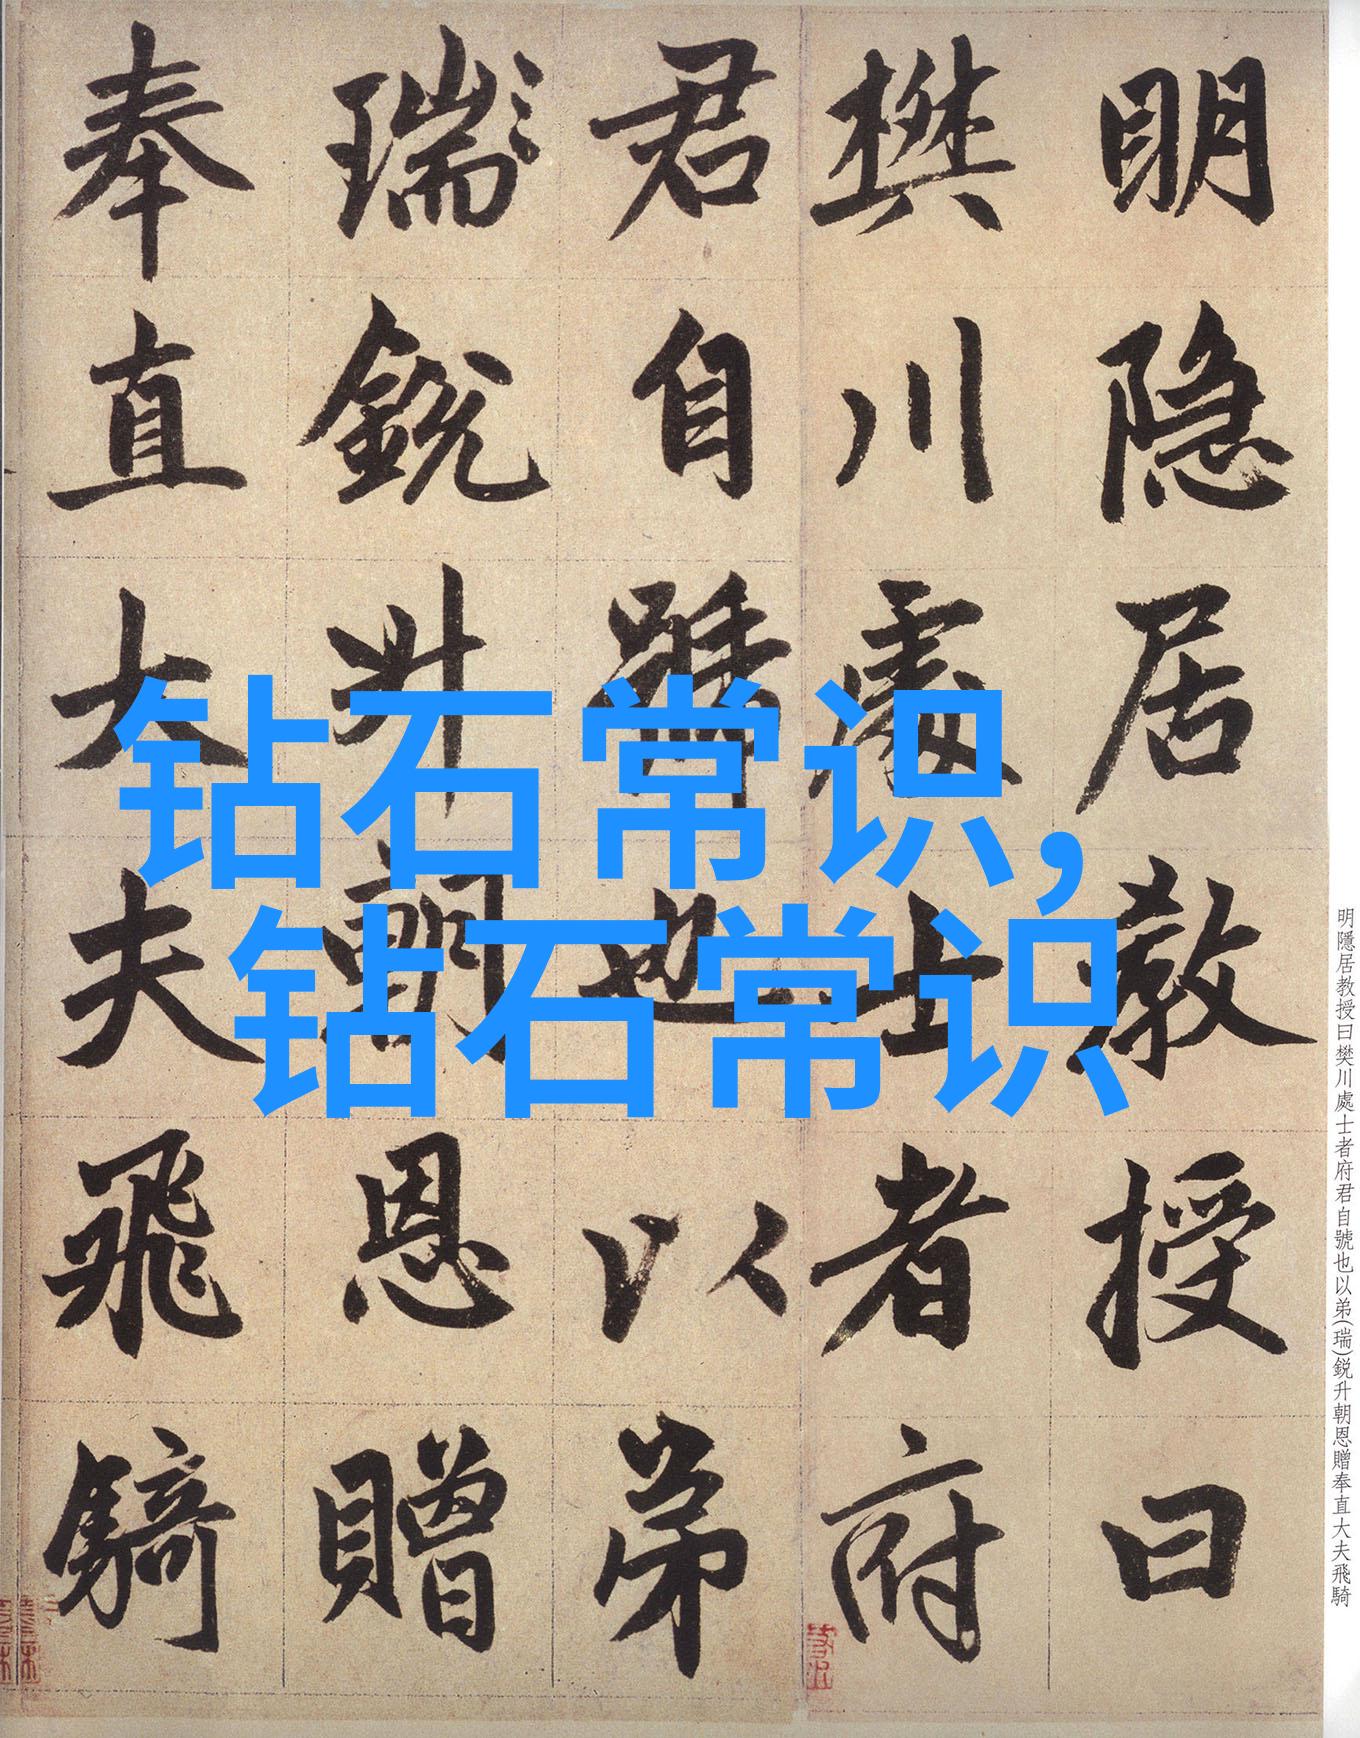 明隐居教授曰
樊川處士者府
君自號也以弟
瑞銳升朝恩贈
奉直大夫飛騎
钻石常识，
钻石常识
明隱居教授曰樊川處士者府君自號也以弟(瑞)鋭升朝恩贈奉直大夫飛騎